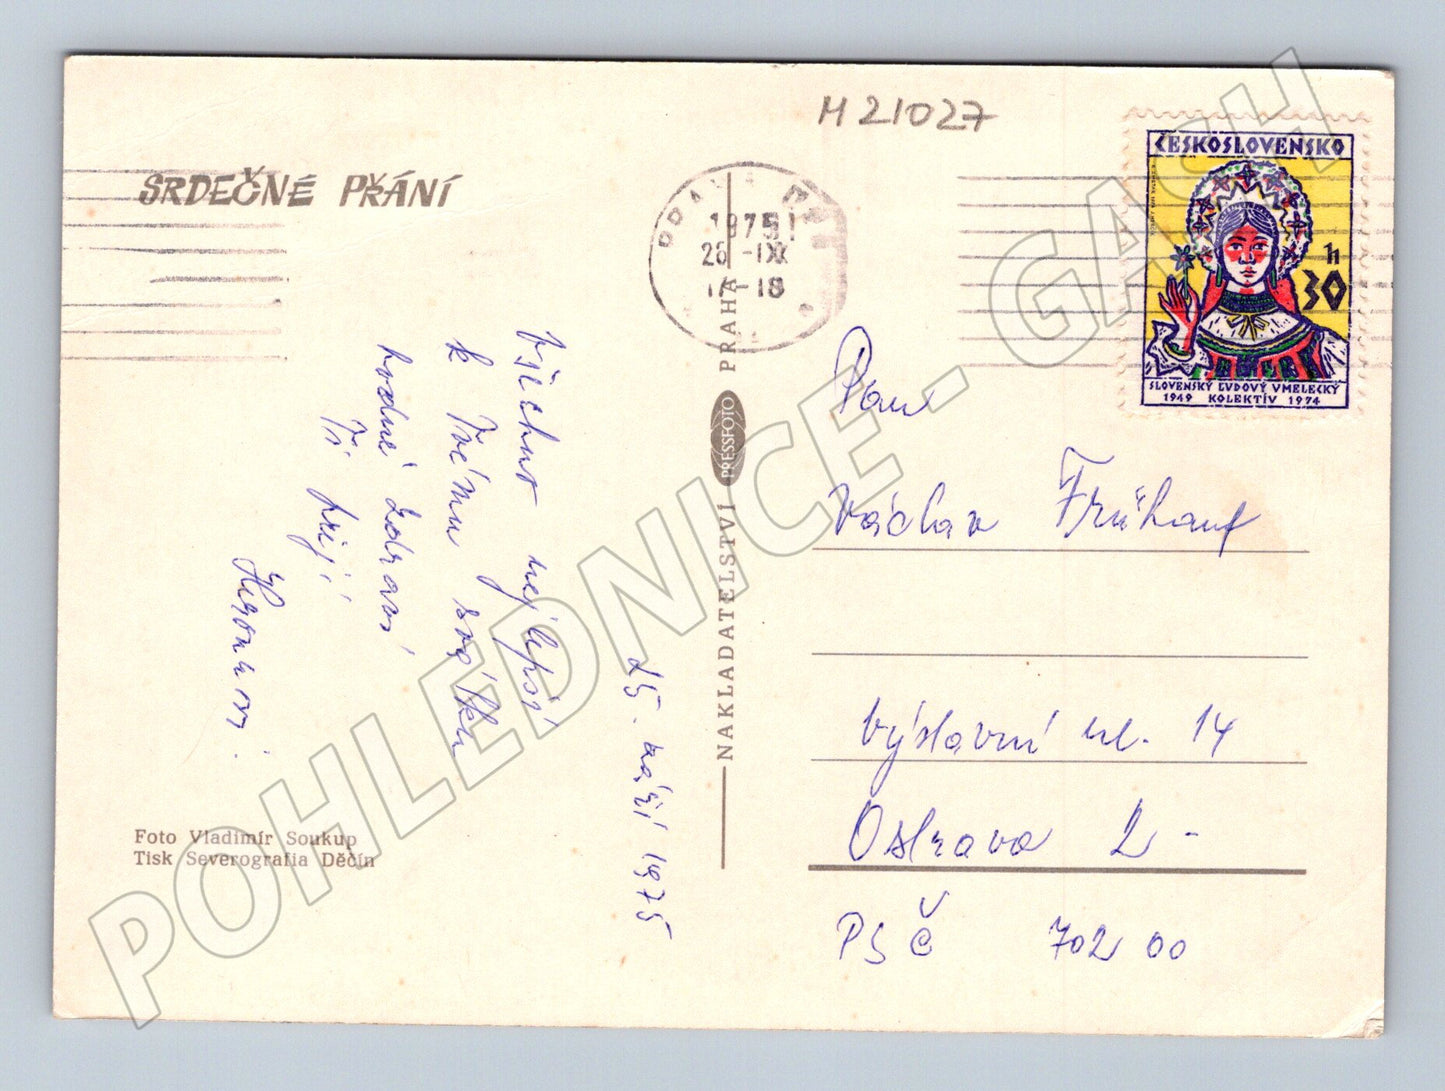 M 21027
SRDEČNÉ PŘÁNÍ
1975
26 -IX
17-18
ČESKOSLOVENSKO
30 h
SLOVENSKÝ ĽUDOVÝ UMELECKÝ
1949 KOLEKTÍV 1974
25. září 1975
Všechno nejlepší
k Tvému svátku
hodně zdraví
Ti přejí
NAKLADATELSTVÍ PRESSFOTO PRAHA
Pan
Václav Frühauf
Výstavní ul. 14
Ostrava 2 -
PSČ 702 00
Foto Vladimír Soukup
Tisk Severografia Děčín
POHLEDNICE - GACH